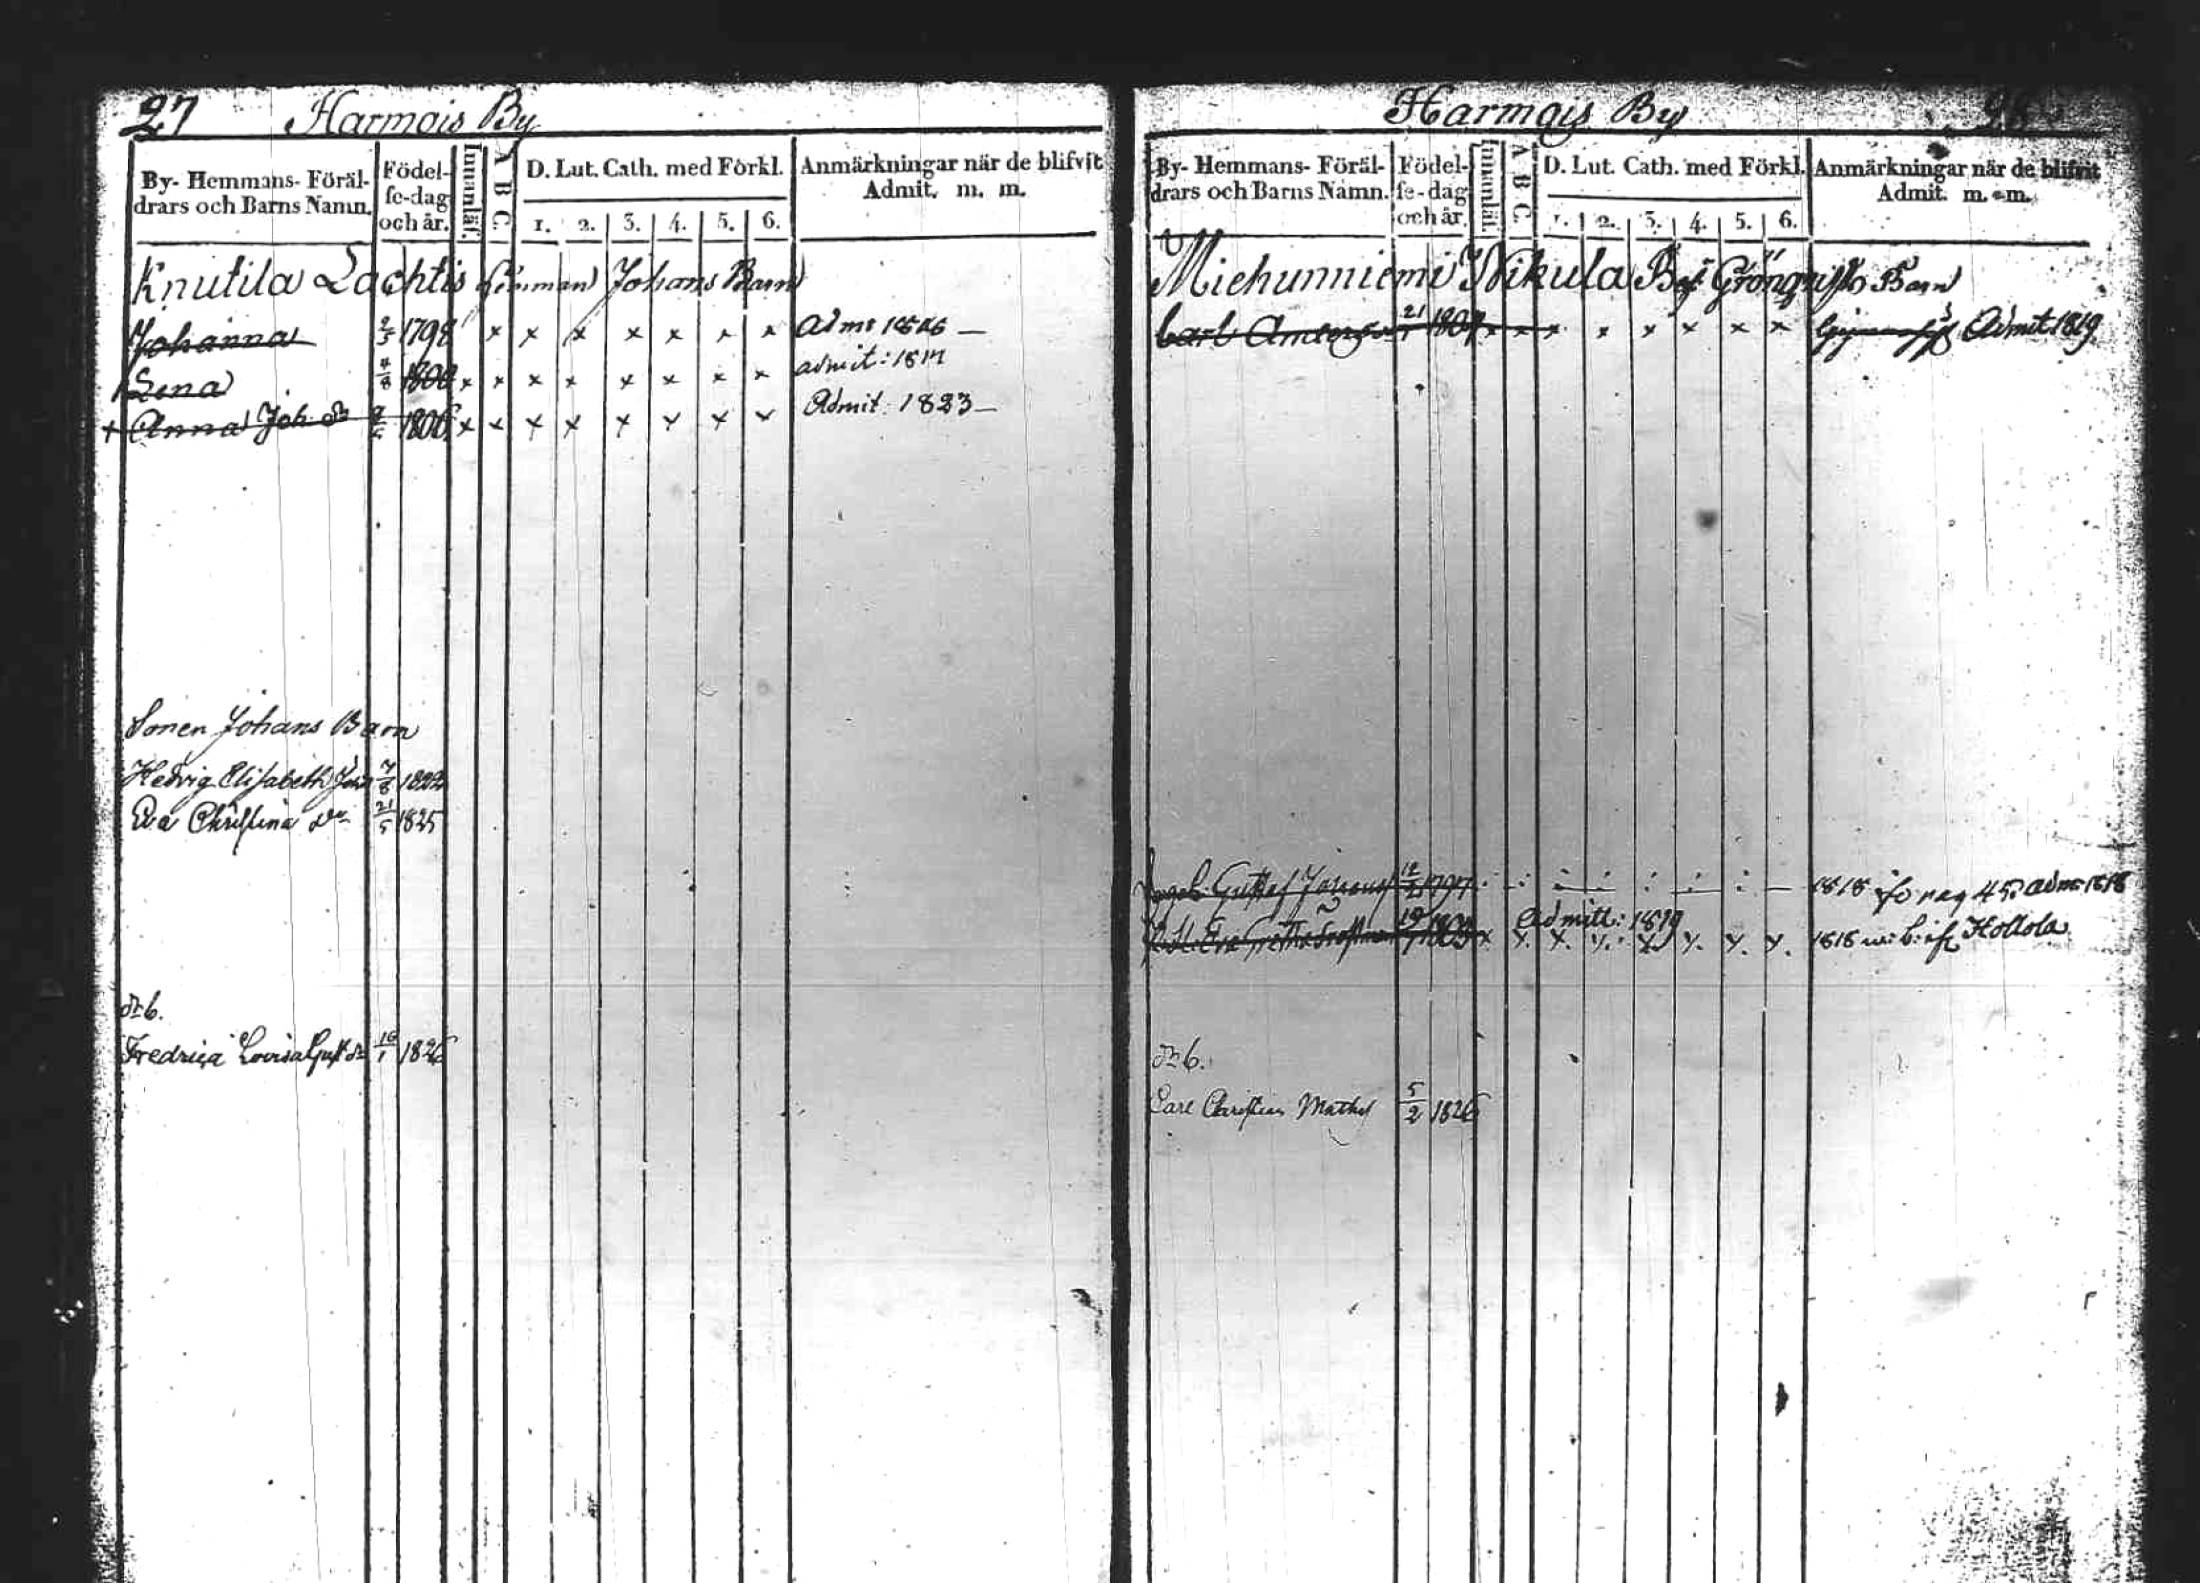 27 Harmois By
By- Hemmans- Föräl-
drars och Barns Namn.
Födel-
se-dag
och år.
Innanläs.
A B C.
D. Lut. Cath. med Förkl.
1. 2. 3. 4. 5. 6.
Anmärkningar när de blifvit
Admit. m. m.
Knutila Lachtis Johans Barn
Johanna 2/5 1798 x x x x x x x
Lena 4/8 1800 x x x x x x x x admit: 1817
+ Anna Joh. dr 1806 x x x x x x x x Admit. 1823
Sonen Johans Barn
Hedvig Elisabeth 7/8 1822
Eva Christina dr 21/5 1825
dr b.
Fredrica Lovisa Gust dr 16/1 1826
Harmois By 28
By- Hemmans- Föräl-
drars och Barns Namn.
Födel-
se-dag
och år.
Innanläs.
A B C.
D. Lut. Cath. med Förkl.
1. 2. 3. 4. 5. 6.
Anmärkningar när de blifvit
Admit. m. m.
Miehunniemi Nikula Barn
Carl 21 x x x x x x x x Admit 1819
Gustaf 12 1797 1818 pag 45. adm 1818
Eva 19 Admitt: 1819
x x. x. y. x y. y. y. 1818 Hollola
dr b.
Carl Christian Math 5/2 1826